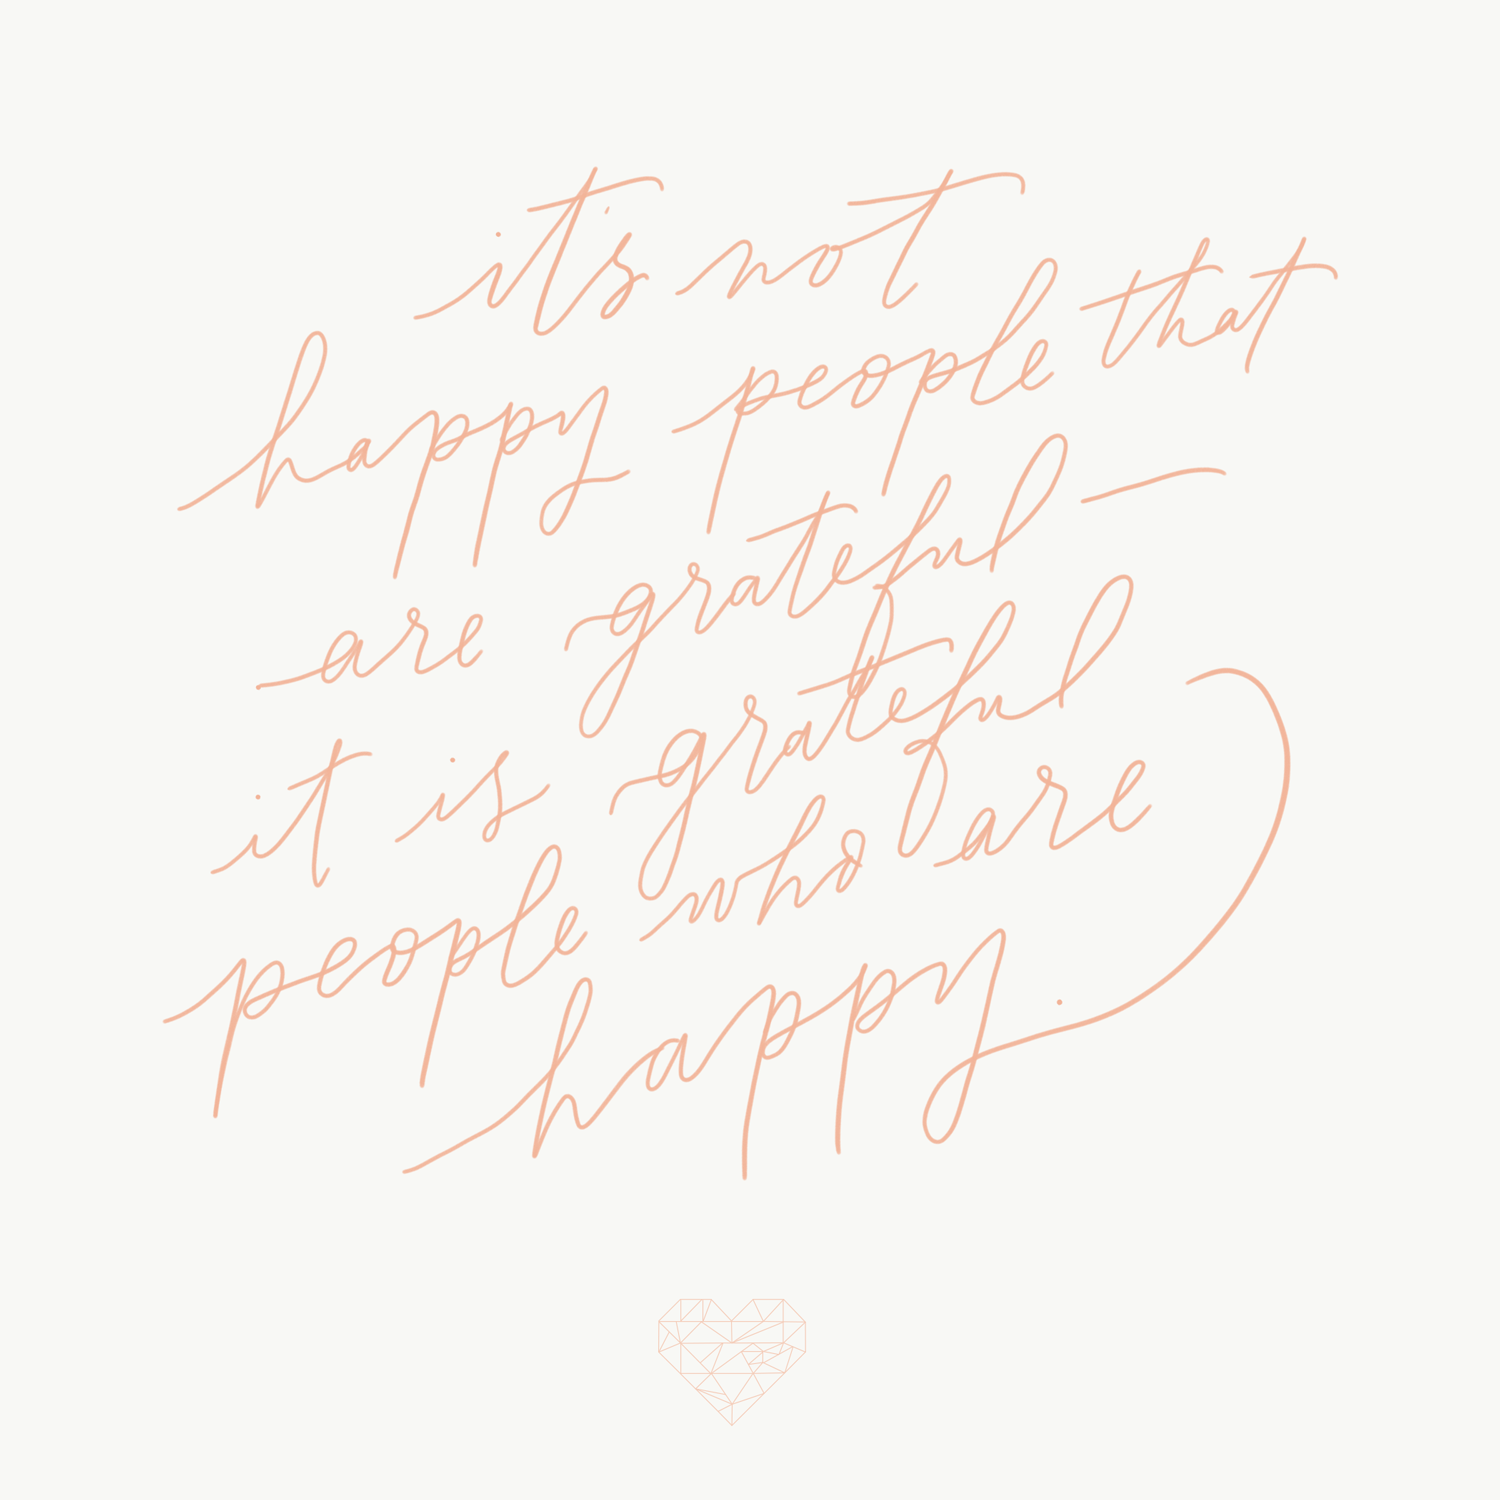 it's not
happy people that
are grateful —
it is grateful
people who are
happy.